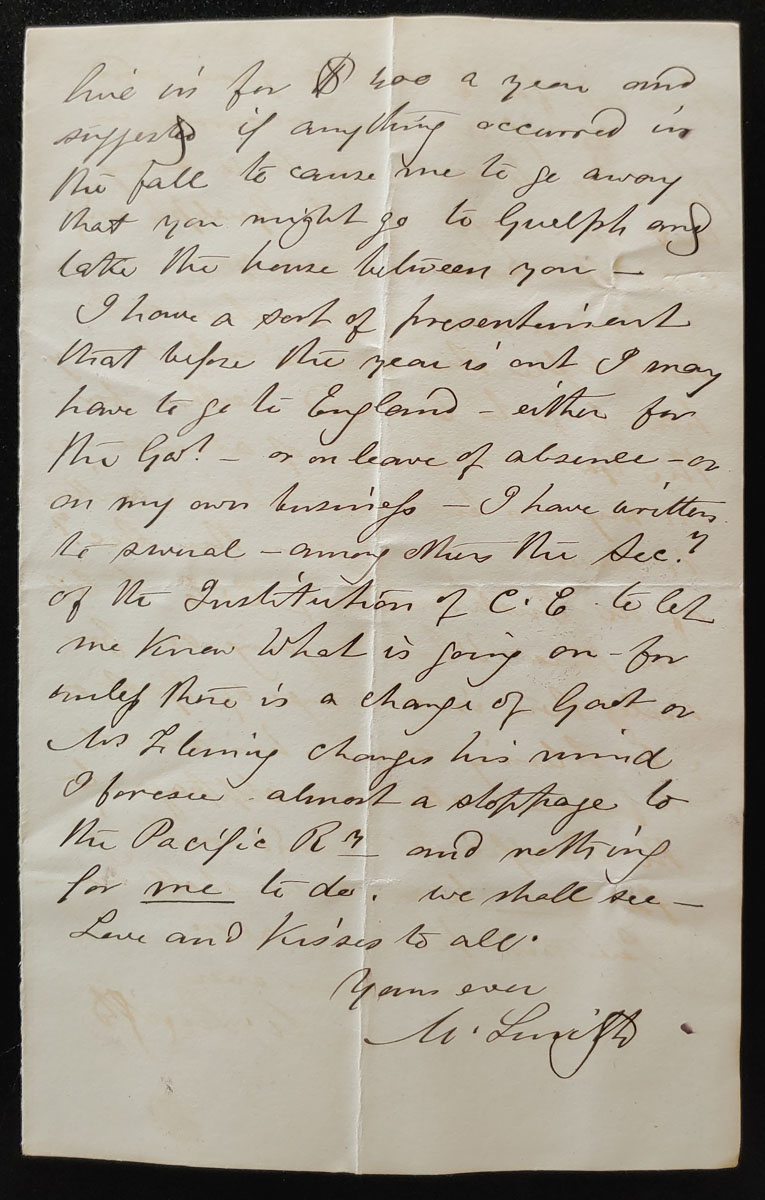 live in for $400 a year and
suggested if anything occurred in
the fall to cause me to go away
that you might go to Guelph and
take the house between you —
I have a sort of presentiment
that before the year is out I may
have to go to England – either for
the Govt. – or on leave of absence – or
on my own business – I have written
to several – among others the Secy.
of the Institution of C. E. to let
me know what is going on – for
unless there is a change of Govt or
Mr Fleming changes his mind
I foresee almost a stoppage to
the Pacific Ry and nothing
for me to do. We shall see –
Love and Kisses to all.
Yours ever
M.